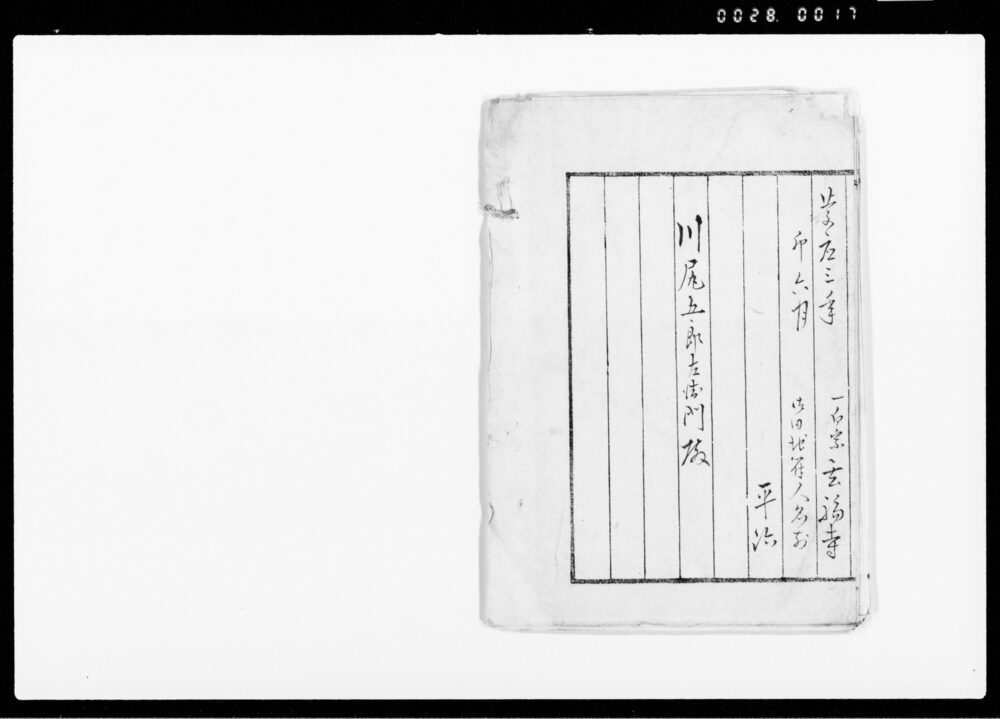 0028. 0017
慶応三年
卯六月
一向宗 玄福寺
御田地守人名前
平治
川尻五郎左衛門殿